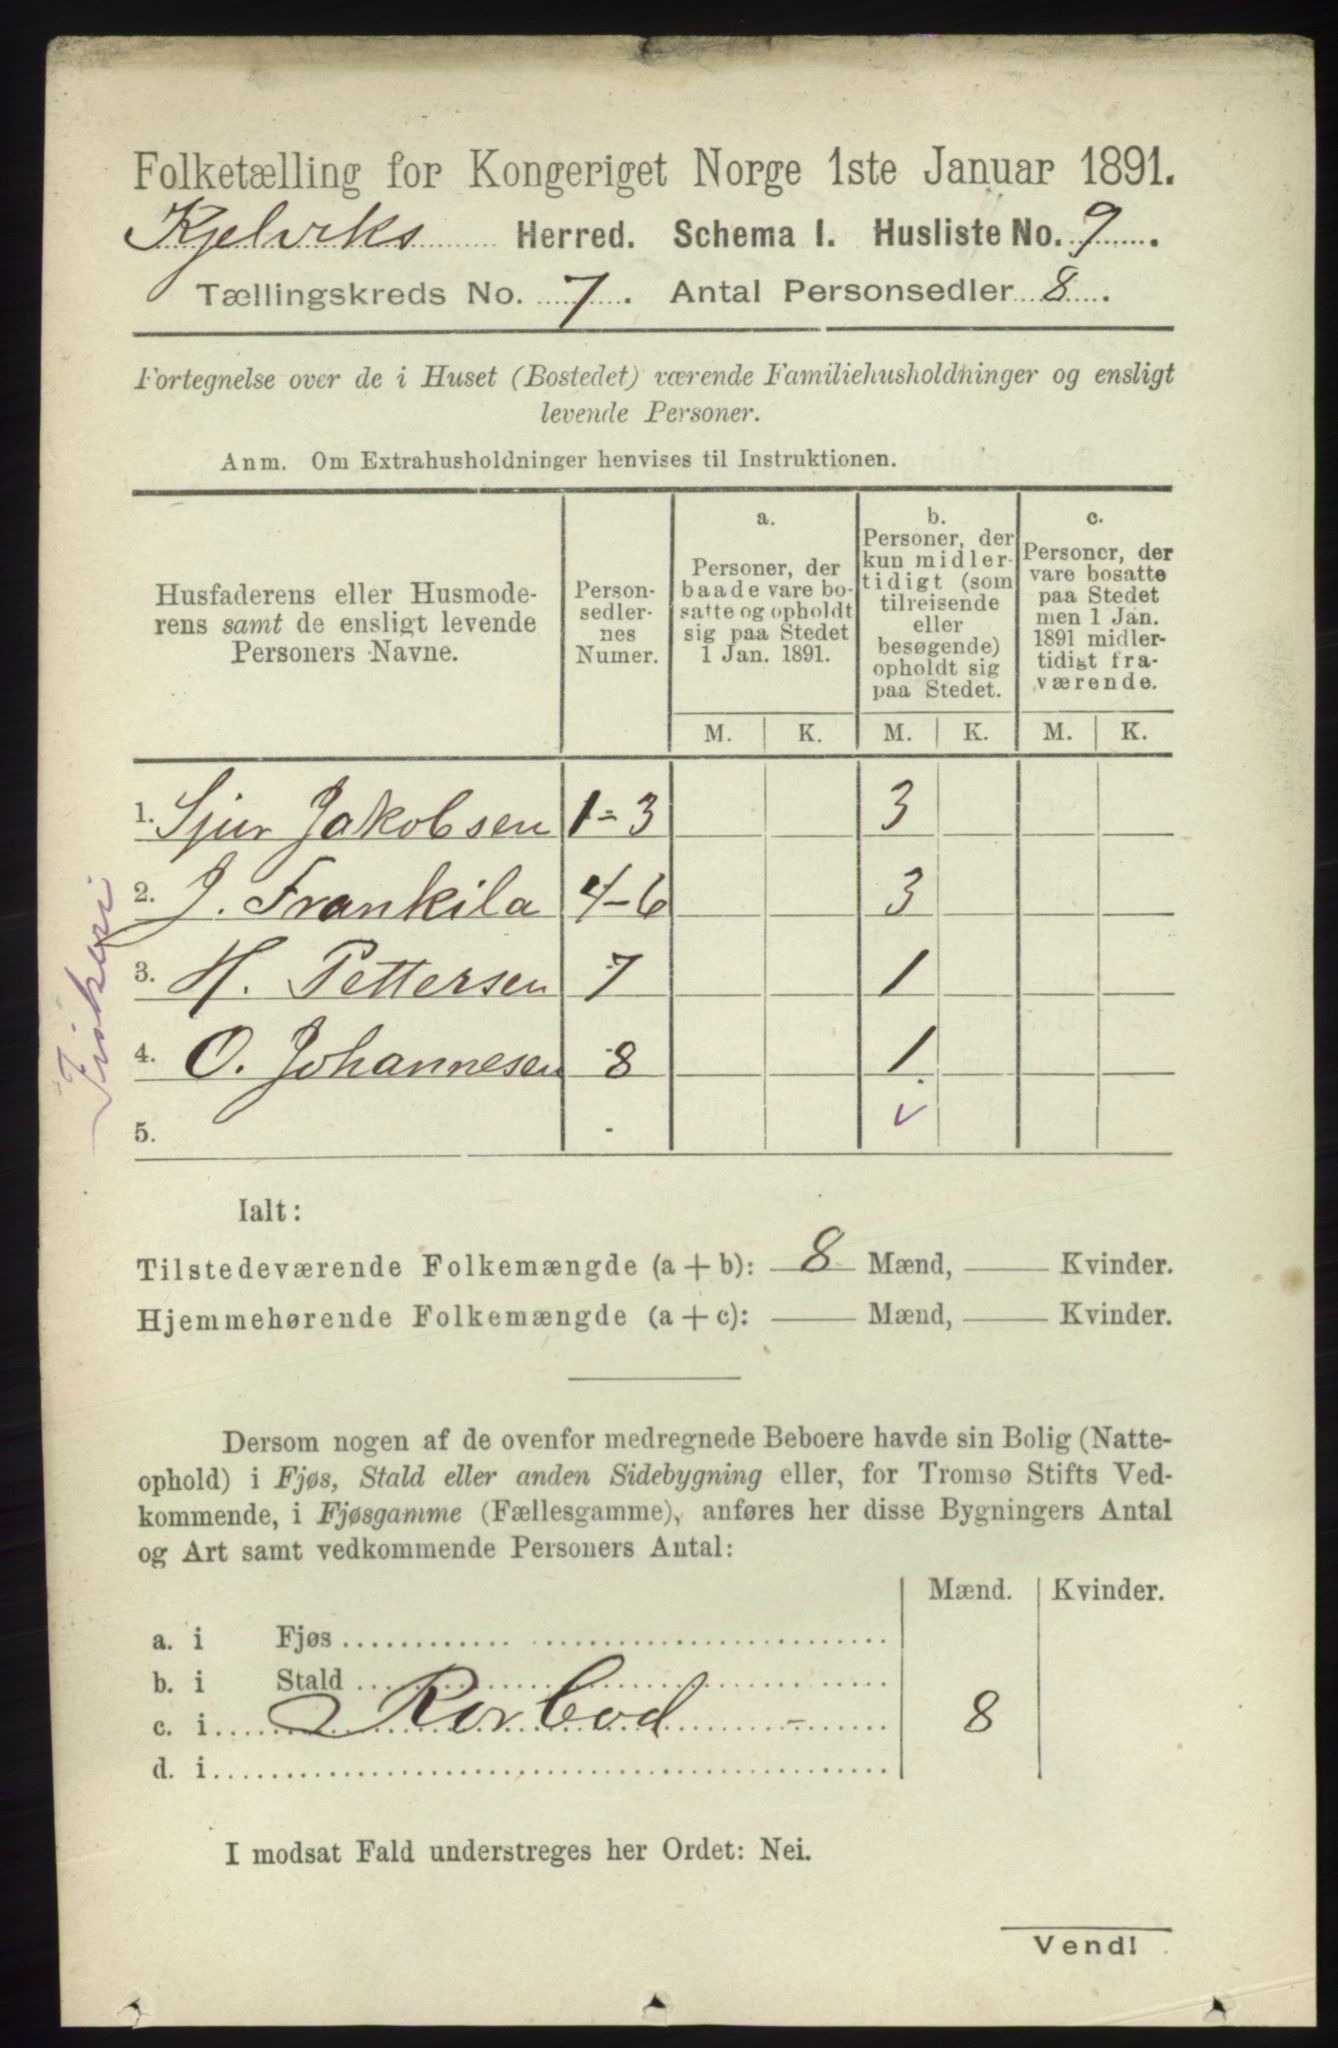 Folketælling for Kongeriget Norge 1ste Januar 1891.
Kjelviks Herred. Schema I. Husliste No. 9.
Tællingskreds No. 7. Antal Personsedler 8.
Fortegnelse over de i Huset (Bostedet) værende Familiehusholdninger og ensligt
levende Personer.
Anm. Om Extrahusholdninger henvises til Instruktionen.
Husfaderens eller Husmode-
rens samt de ensligt levende
Personers Navne.
Person-
sedler-
nes
Numer.
a.
Personer, der
baade vare bo-
satte og opholdt
sig paa Stedet
1 Jan. 1891.
b.
Personer, der
kun midler-
tidigt (som
tilreisende
eller
besøgende)
opholdt sig
paa Stedet.
c.
Personer, der
vare bosatte
paa Stedet
men 1 Jan.
1891 midler-
tidigt fra-
værende.
M. K. M. K. M. K.
1. Sjur Jakobsen 1-3 3
2. J. Frankila 4-6 3
3. H. Pettersen 7 1
4. O. Johannesen 8 1
5.
Fiskeri
Ialt:
Tilstedeværende Folkemængde (a + b): 8 Mænd, — Kvinder.
Hjemmehørende Folkemængde (a + c): — Mænd, — Kvinder.
Dersom nogen af de ovenfor medregnede Beboere havde sin Bolig (Natte-
ophold) i Fjøs, Stald eller anden Sidebygning eller, for Tromsø Stifts Ved-
kommende, i Fjøsgamme (Fællesgamme), anføres her disse Bygningers Antal
og Art samt vedkommende Personers Antal:
Mænd. Kvinder.
a. i Fjøs
b. i Stald
c. i Rorbod - 8
d. i
I modsat Fald understreges her Ordet: Nei.
Vend!